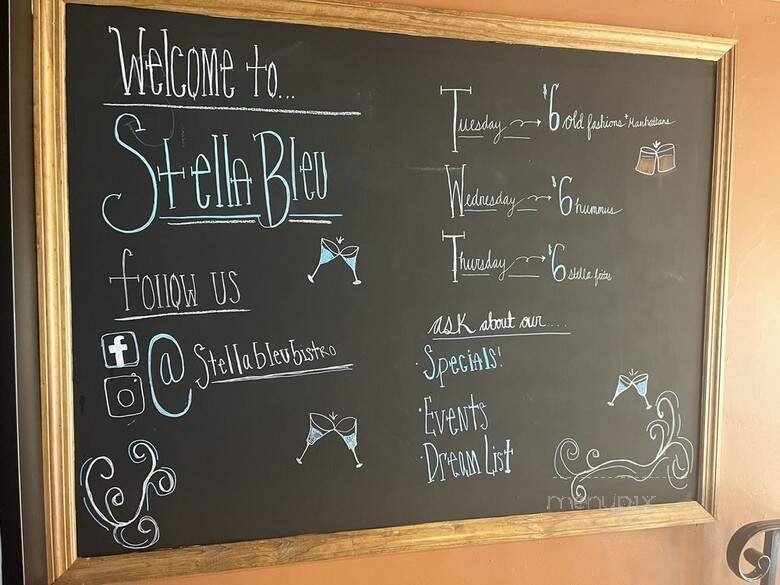 Welcome to...
Stella Bleu
follow us
f
@Stellableubistro
Tuesday → $6 old fashions + Manhattans
Wednesday → $6 hummus
Thursday → $6 stella frites
ask about our....
· Specials!
· Events
· Dream List
menupix